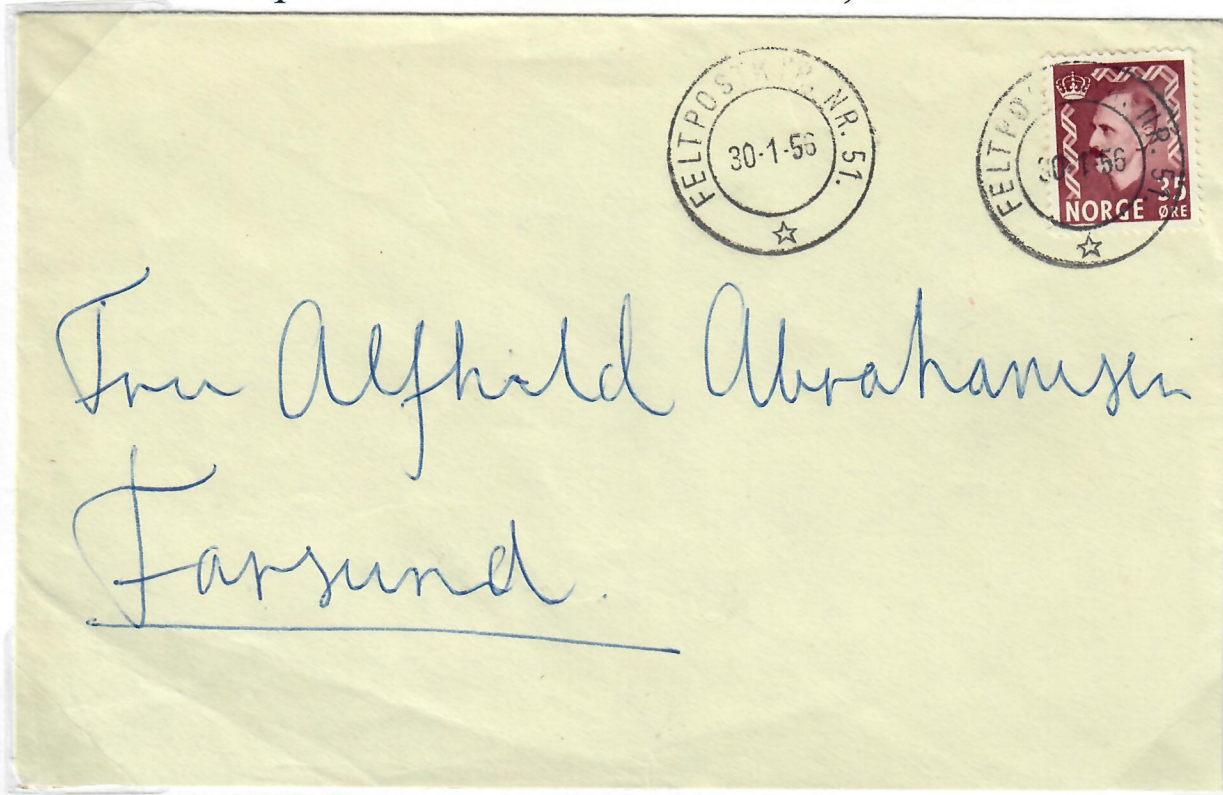 FELTPOSTKTR. NR. 51.
30-1-56
FELTPOS NR. 51.
30-1-56
35
NORGE ØRE
Fru Alfhild Abrahamsen
Farsund.